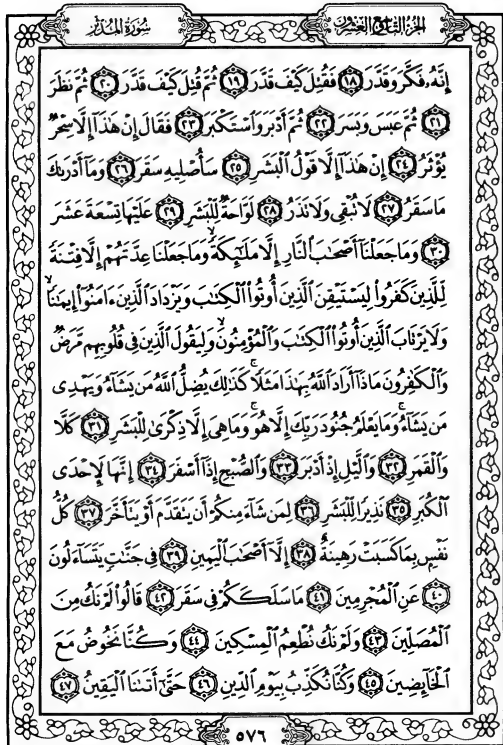 الجزء التاسع والعشرون سورة المدثر
إِنَّهُۥ فَكَّرَ وَقَدَّرَ ١٨ فَقُتِلَ كَيْفَ قَدَّرَ ١٩ ثُمَّ قُتِلَ كَيْفَ قَدَّرَ ٢٠ ثُمَّ نَظَرَ
٢١ ثُمَّ عَبَسَ وَبَسَرَ ٢٢ ثُمَّ أَدْبَرَ وَٱسْتَكْبَرَ ٢٣ فَقَالَ إِنْ هَٰذَآ إِلَّا سِحْرٌ
يُؤْثَرُ ٢٤ إِنْ هَٰذَآ إِلَّا قَوْلُ ٱلْبَشَرِ ٢٥ سَأُصْلِيهِ سَقَرَ ٢٦ وَمَآ أَدْرَىٰكَ
مَا سَقَرُ ٢٧ لَا تُبْقِى وَلَا تَذَرُ ٢٨ لَوَّاحَةٌ لِّلْبَشَرِ ٢٩ عَلَيْهَا تِسْعَةَ عَشَرَ
٣٠ وَمَا جَعَلْنَآ أَصْحَٰبَ ٱلنَّارِ إِلَّا مَلَٰٓئِكَةً ۙ وَمَا جَعَلْنَا عِدَّتَهُمْ إِلَّا فِتْنَةً
لِّلَّذِينَ كَفَرُوا۟ لِيَسْتَيْقِنَ ٱلَّذِينَ أُوتُوا۟ ٱلْكِتَٰبَ وَيَزْدَادَ ٱلَّذِينَ ءَامَنُوٓا۟ إِيمَٰنًا ۙ
وَلَا يَرْتَابَ ٱلَّذِينَ أُوتُوا۟ ٱلْكِتَٰبَ وَٱلْمُؤْمِنُونَ ۙ وَلِيَقُولَ ٱلَّذِينَ فِى قُلُوبِهِم مَّرَضٌ
وَٱلْكَٰفِرُونَ مَاذَآ أَرَادَ ٱللَّهُ بِهَٰذَا مَثَلًا ۚ كَذَٰلِكَ يُضِلُّ ٱللَّهُ مَن يَشَآءُ وَيَهْدِى
مَن يَشَآءُ ۚ وَمَا يَعْلَمُ جُنُودَ رَبِّكَ إِلَّا هُوَ ۚ وَمَا هِىَ إِلَّا ذِكْرَىٰ لِلْبَشَرِ ٣١ كَلَّا
وَٱلْقَمَرِ ٣٢ وَٱلَّيْلِ إِذْ أَدْبَرَ ٣٣ وَٱلصُّبْحِ إِذَآ أَسْفَرَ ٣٤ إِنَّهَا لَإِحْدَى
ٱلْكُبَرِ ٣٥ نَذِيرًا لِّلْبَشَرِ ٣٦ لِمَن شَآءَ مِنكُمْ أَن يَتَقَدَّمَ أَوْ يَتَأَخَّرَ ٣٧ كُلُّ
نَفْسٍۭ بِمَا كَسَبَتْ رَهِينَةٌ ٣٨ إِلَّآ أَصْحَٰبَ ٱلْيَمِينِ ٣٩ فِى جَنَّٰتٍ يَتَسَآءَلُونَ
٤٠ عَنِ ٱلْمُجْرِمِينَ ٤١ مَا سَلَكَكُمْ فِى سَقَرَ ٤٢ قَالُوا۟ لَمْ نَكُ مِنَ
ٱلْمُصَلِّينَ ٤٣ وَلَمْ نَكُ نُطْعِمُ ٱلْمِسْكِينَ ٤٤ وَكُنَّا نَخُوضُ مَعَ
ٱلْخَآئِضِينَ ٤٥ وَكُنَّا نُكَذِّبُ بِيَوْمِ ٱلدِّينِ ٤٦ حَتَّىٰٓ أَتَىٰنَا ٱلْيَقِينُ ٤٧
٥٧٦